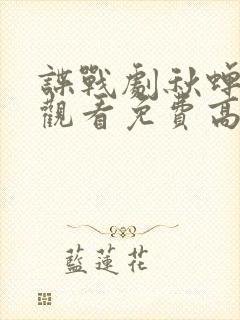 諜戰劇秋蟬
觀看免費高
藍蓮花